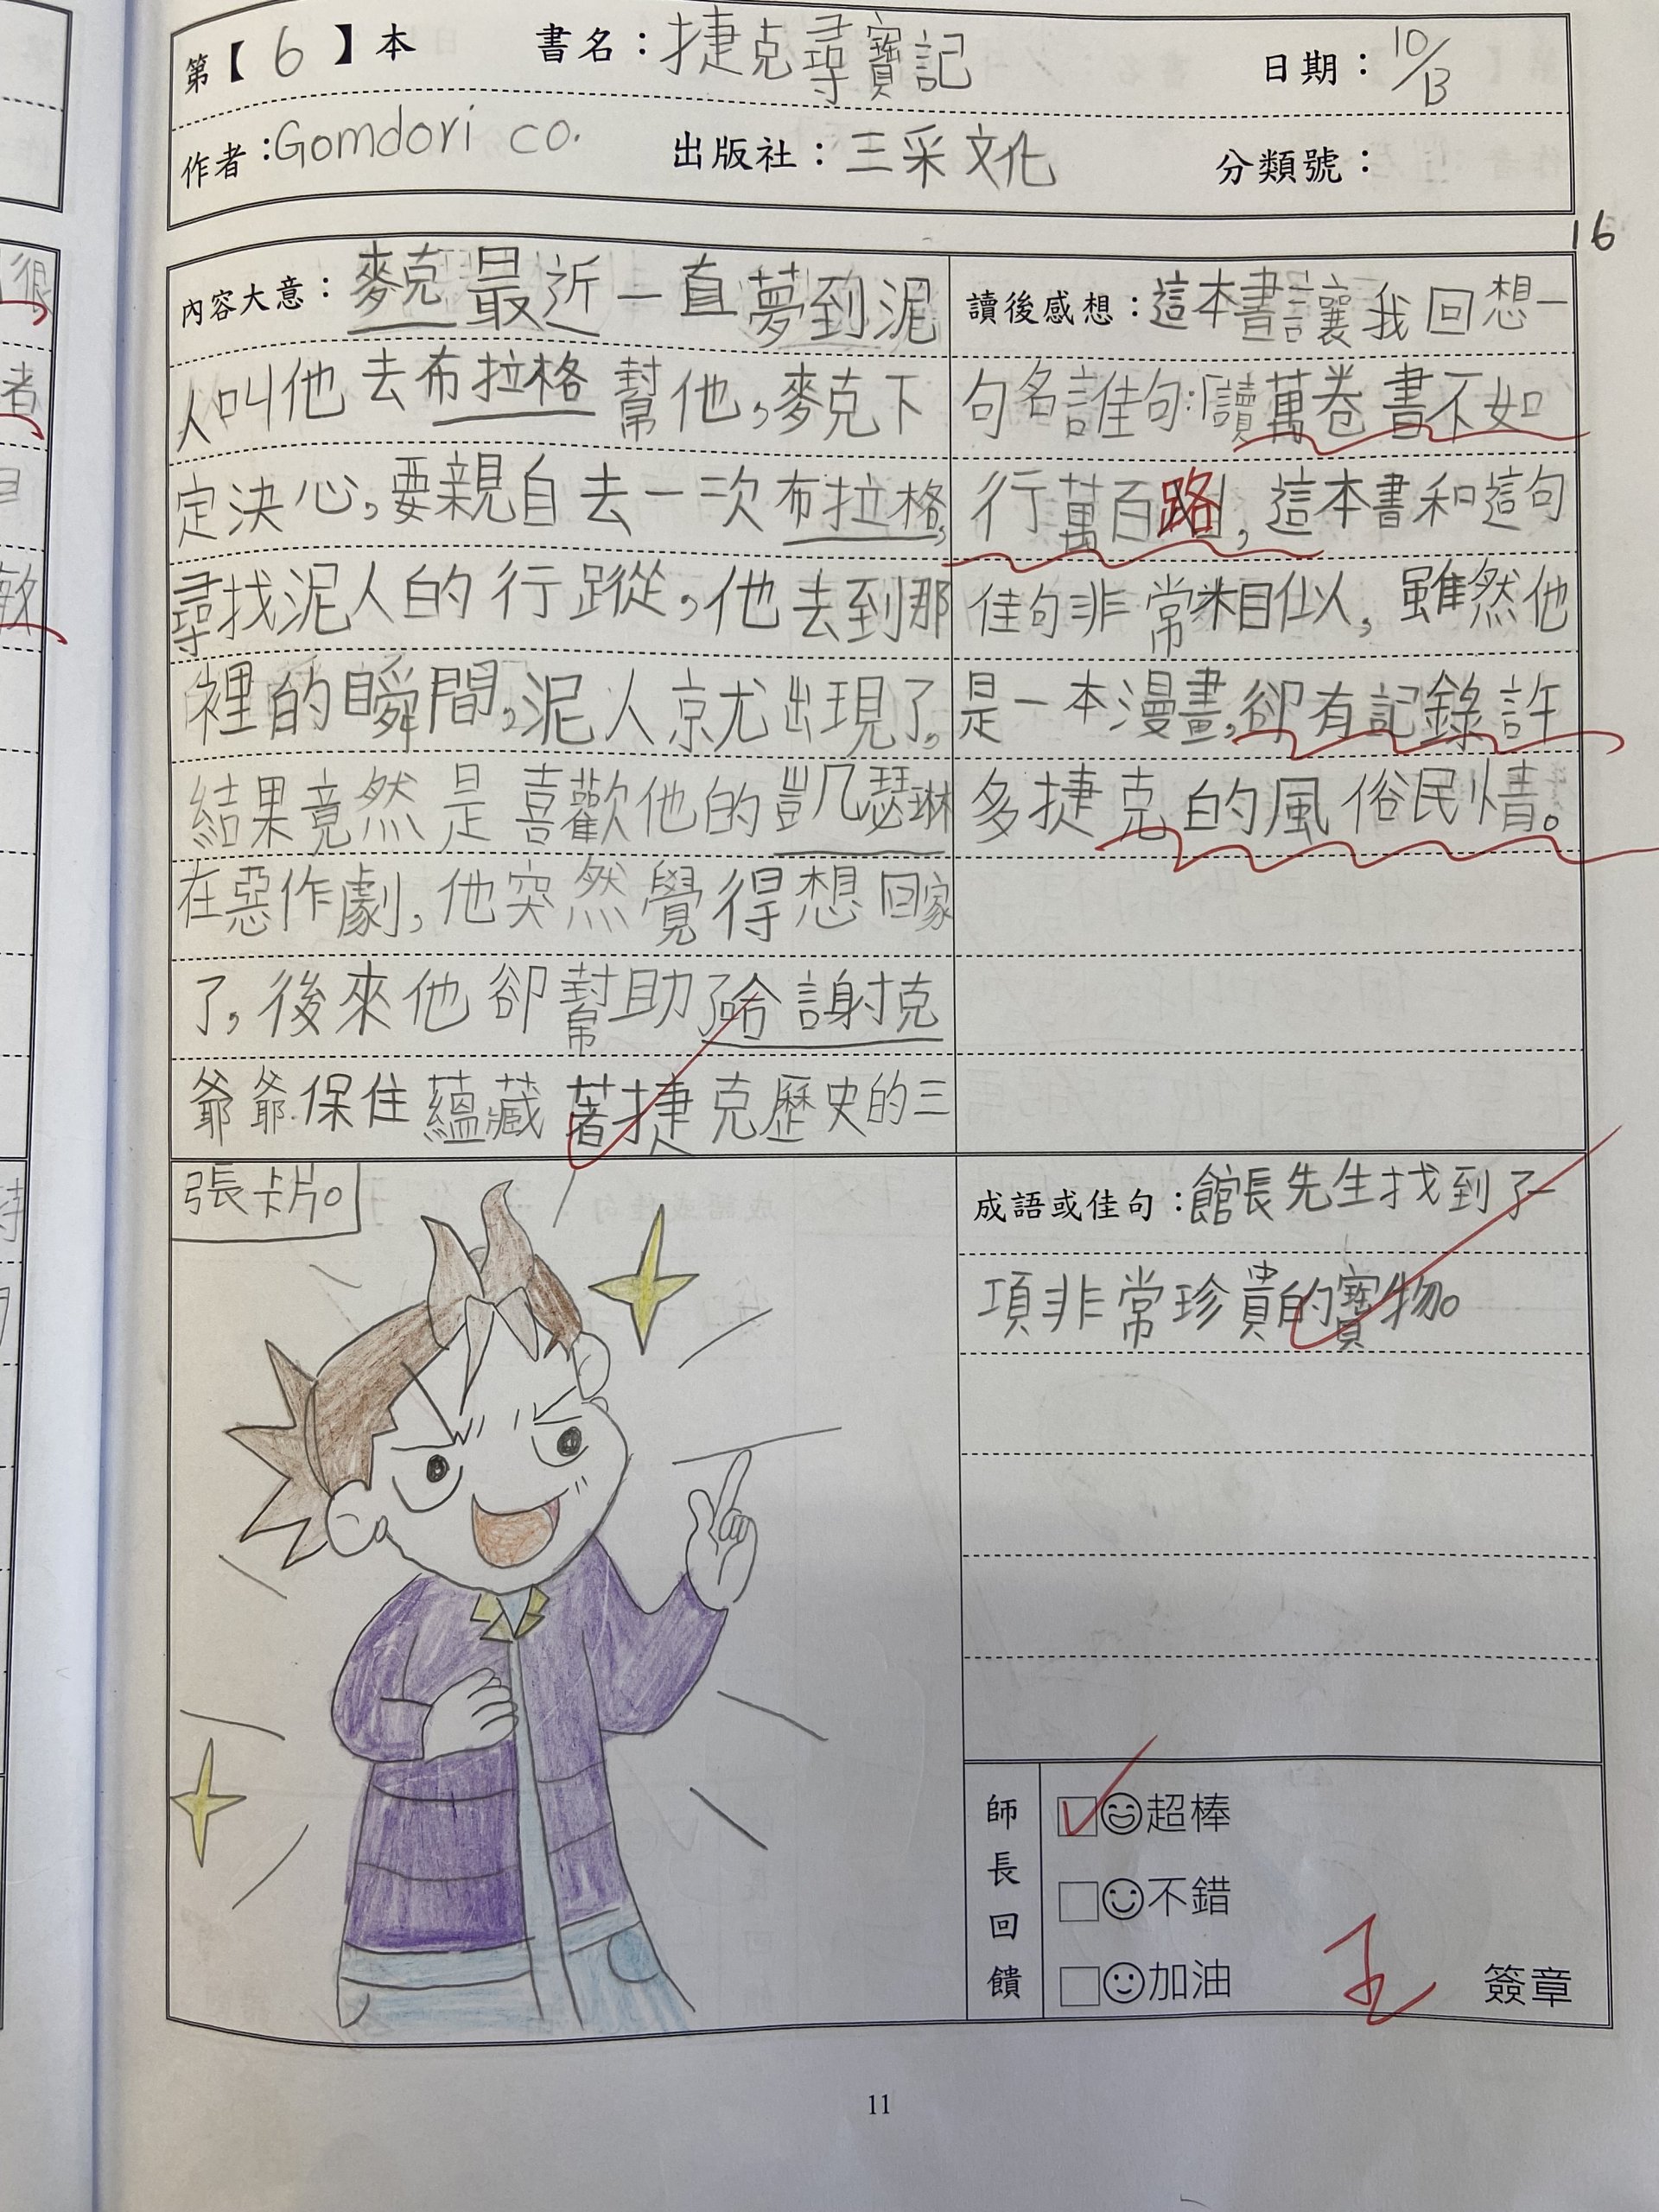 第【6】本 書名：捷克尋寶記 日期：10/13
作者：Gomdori co. 出版社：三采文化 分類號：
16
內容大意：麥克最近一直夢到泥
人叫他去布拉格幫他，麥克下
定決心，要親自去一次布拉格，
尋找泥人的行蹤，他去到那
裡的瞬間，泥人就出現了，
結果竟然是喜歡他的凱瑟琳
在惡作劇，他突然覺得想回家
了，後來他卻幫助哈謝克
爺爺保住蘊藏著捷克歷史的三
張卡片。
讀後感想：這本書讓我回想一
句名言佳句：「讀萬卷書不如
行萬百路」，這本書和這句
佳句非常相似，雖然他
是一本漫畫，卻有記錄許
多捷克的風俗民情。
成語或佳句：館長先生找到了一
項非常珍貴的寶物。
師長回饋
超棒
不錯
加油
簽章
11